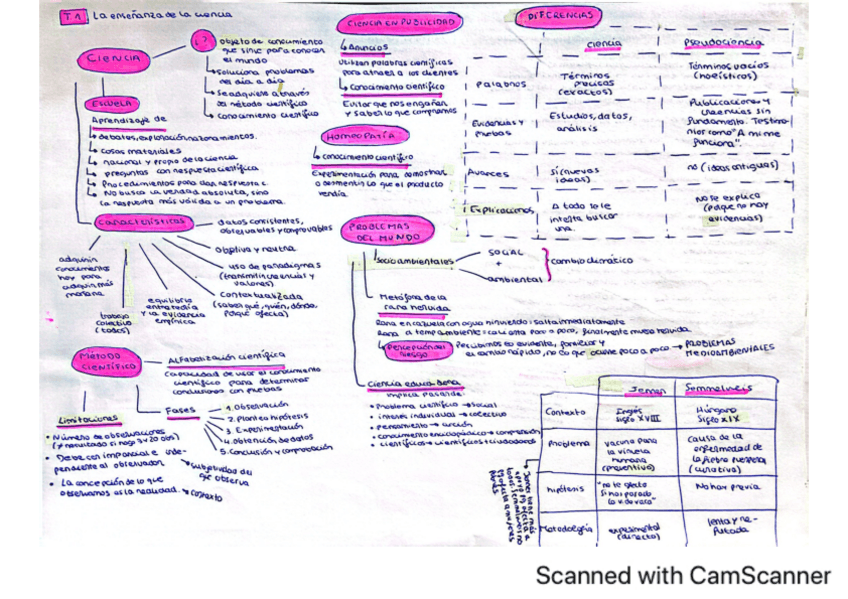 T.1 La enseñanza de la ciencia
CIENCIA
¿?
Objeto de conocimiento
que sirve para conocer
el mundo
↳ soluciona problemas
del día a día
↳ Se adquiere a través
del método científico
↳ conocimiento científico
ESCUELA
Aprendizaje de
↳ debates, exploración, razonamientos.
↳ cosas materiales
↳ nacional y propio de la ciencia
↳ preguntas con respuesta científica
↳ Procedimientos para dar respuesta c.
↳ No busca la verdad absoluta, sino
la respuesta más válida a un problema.
Características
datos consistentes,
observables y comprobables
Objetiva y neutra
uso de paradigmas
(transmitir creencias y
valores)
Contextualizada
(saber qué, quién, dónde,
porqué afecta)
equilibrio
entre teoría
y la evidencia
empírica
trabajo
colectivo
(todos)
adquirir
conocimientos
hoy para
adquirir más
mañana
MÉTODO
CIENTÍFICO
ALFABETIZACIÓN científica
Capacidad de usar el conocimiento
científico para determinar
conclusiones con pruebas
Fases
1. Observación
2. Plantea hipótesis
3. Experimentación
4. Obtención de datos
5. Conclusión y comprobación
Limitaciones
• Número de observaciones
• Debe ser imparcial e inde-
pendiente al observador
subjetividad del
que observa
• La concepción de lo que
observamos es la realidad.
contexto
CIENCIA EN PUBLICIDAD
↳ Anuncios
Utilizan palabras científicas
para atraer a los clientes
↳ Conocimiento científico
Evitar que nos engañen
y saber lo que compramos
HOMEOPATÍA
↳ conocimiento científico
Experimentación para demostrar
o desmentir lo que el producto
vendía
PROBLEMAS
DEL MUNDO
Socioambientales
SOCIAL
+
ambiental
cambio climático
Metáfora de la
rana hervida
Rana en cazuela con agua hirviendo: salta inmediatamente
Rana a temp. ambiente: calienta poco a poco, finalmente muere hervida
Percepción del
riesgo
Percibimos lo evidente, familiar y
el cambio rápido, no lo que ocurre poco a poco → PROBLEMAS
MEDIOAMBIENTALES
Ciencia educa bena
implica pasar de
• Problema científico → social
• interés individual → colectivo
• pensamiento → acción
• conocimiento enciclopédico → comprensión
• científicos → científicos + ciudadanos
DIFERENCIAS
Ciencia Pseudociencia
Palabras
Términos
precisos
(exactos)
Términos vacíos
(holísticos)
Evidencias y
Pruebas
Estudios, datos,
análisis
Publicaciones y
creencias sin
fundamento. Testimo-
nios como "A mi me
funciona".
Avances
Sí (nuevas
ideas)
no (ideas antiguas)
Explicaciones
A todo se le
intenta buscar
una.
No se explica
(porque no hay
evidencias)
Jenner Semmelweis
Contexto
Inglés
Siglo XVIII
Húngaro
Siglo XIX
Problema
vacuna para
la viruela
humana
(preventiva)
causa de la
enfermedad de
la fiebre puerperal
(curativa)
hipótesis
No hay previa
Metodología
experimental
(directo)
lenta y re-
futada
Scanned with CamScanner